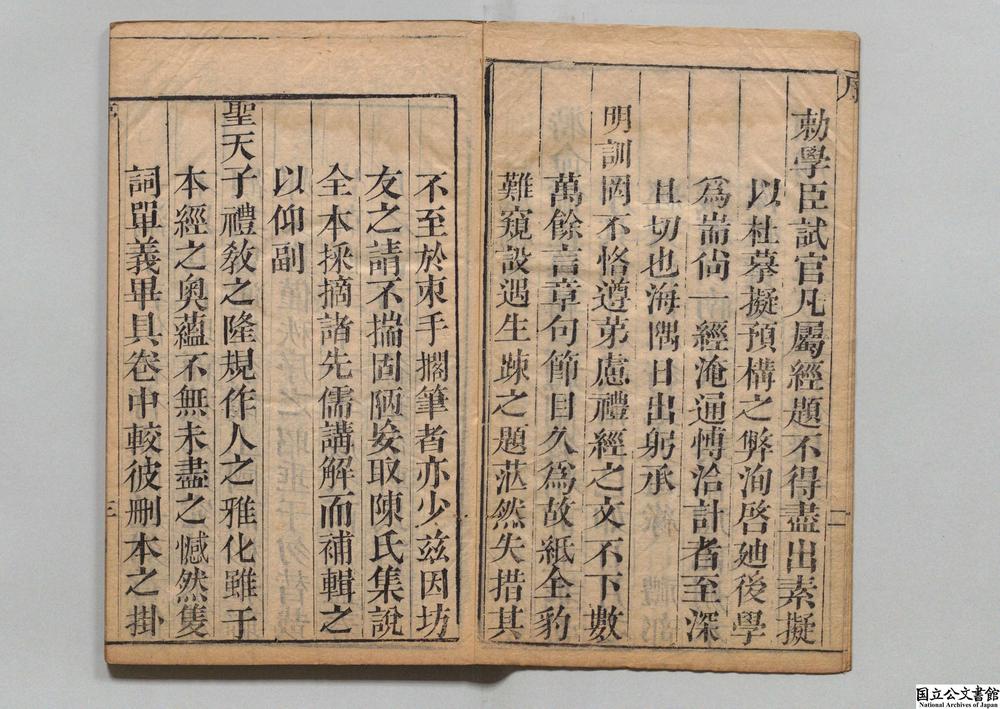 序
勅學臣試官凡屬經題不得盡出素擬
以杜摹擬預構之弊洵啓廸後學
爲耑尙一經淹通博洽計者至深
且切也海隅日出躬承
明訓罔不恪遵第慮禮經之文不下數
萬餘言章句節目久爲故紙全豹
難窺設遇生疎之題茫然失措其
二
不至於束手擱筆者亦少玆因坊
友之請不揣固陋妄取陳氏集說
全本採摘諸先儒講解而補輯之
以仰副
聖天子禮敎之隆規作人之雅化雖于
本經之奧蘊不無未盡之憾然隻
詞單義畢具卷中較彼刪本之掛
三
国立公文書館
National Archives of Japan